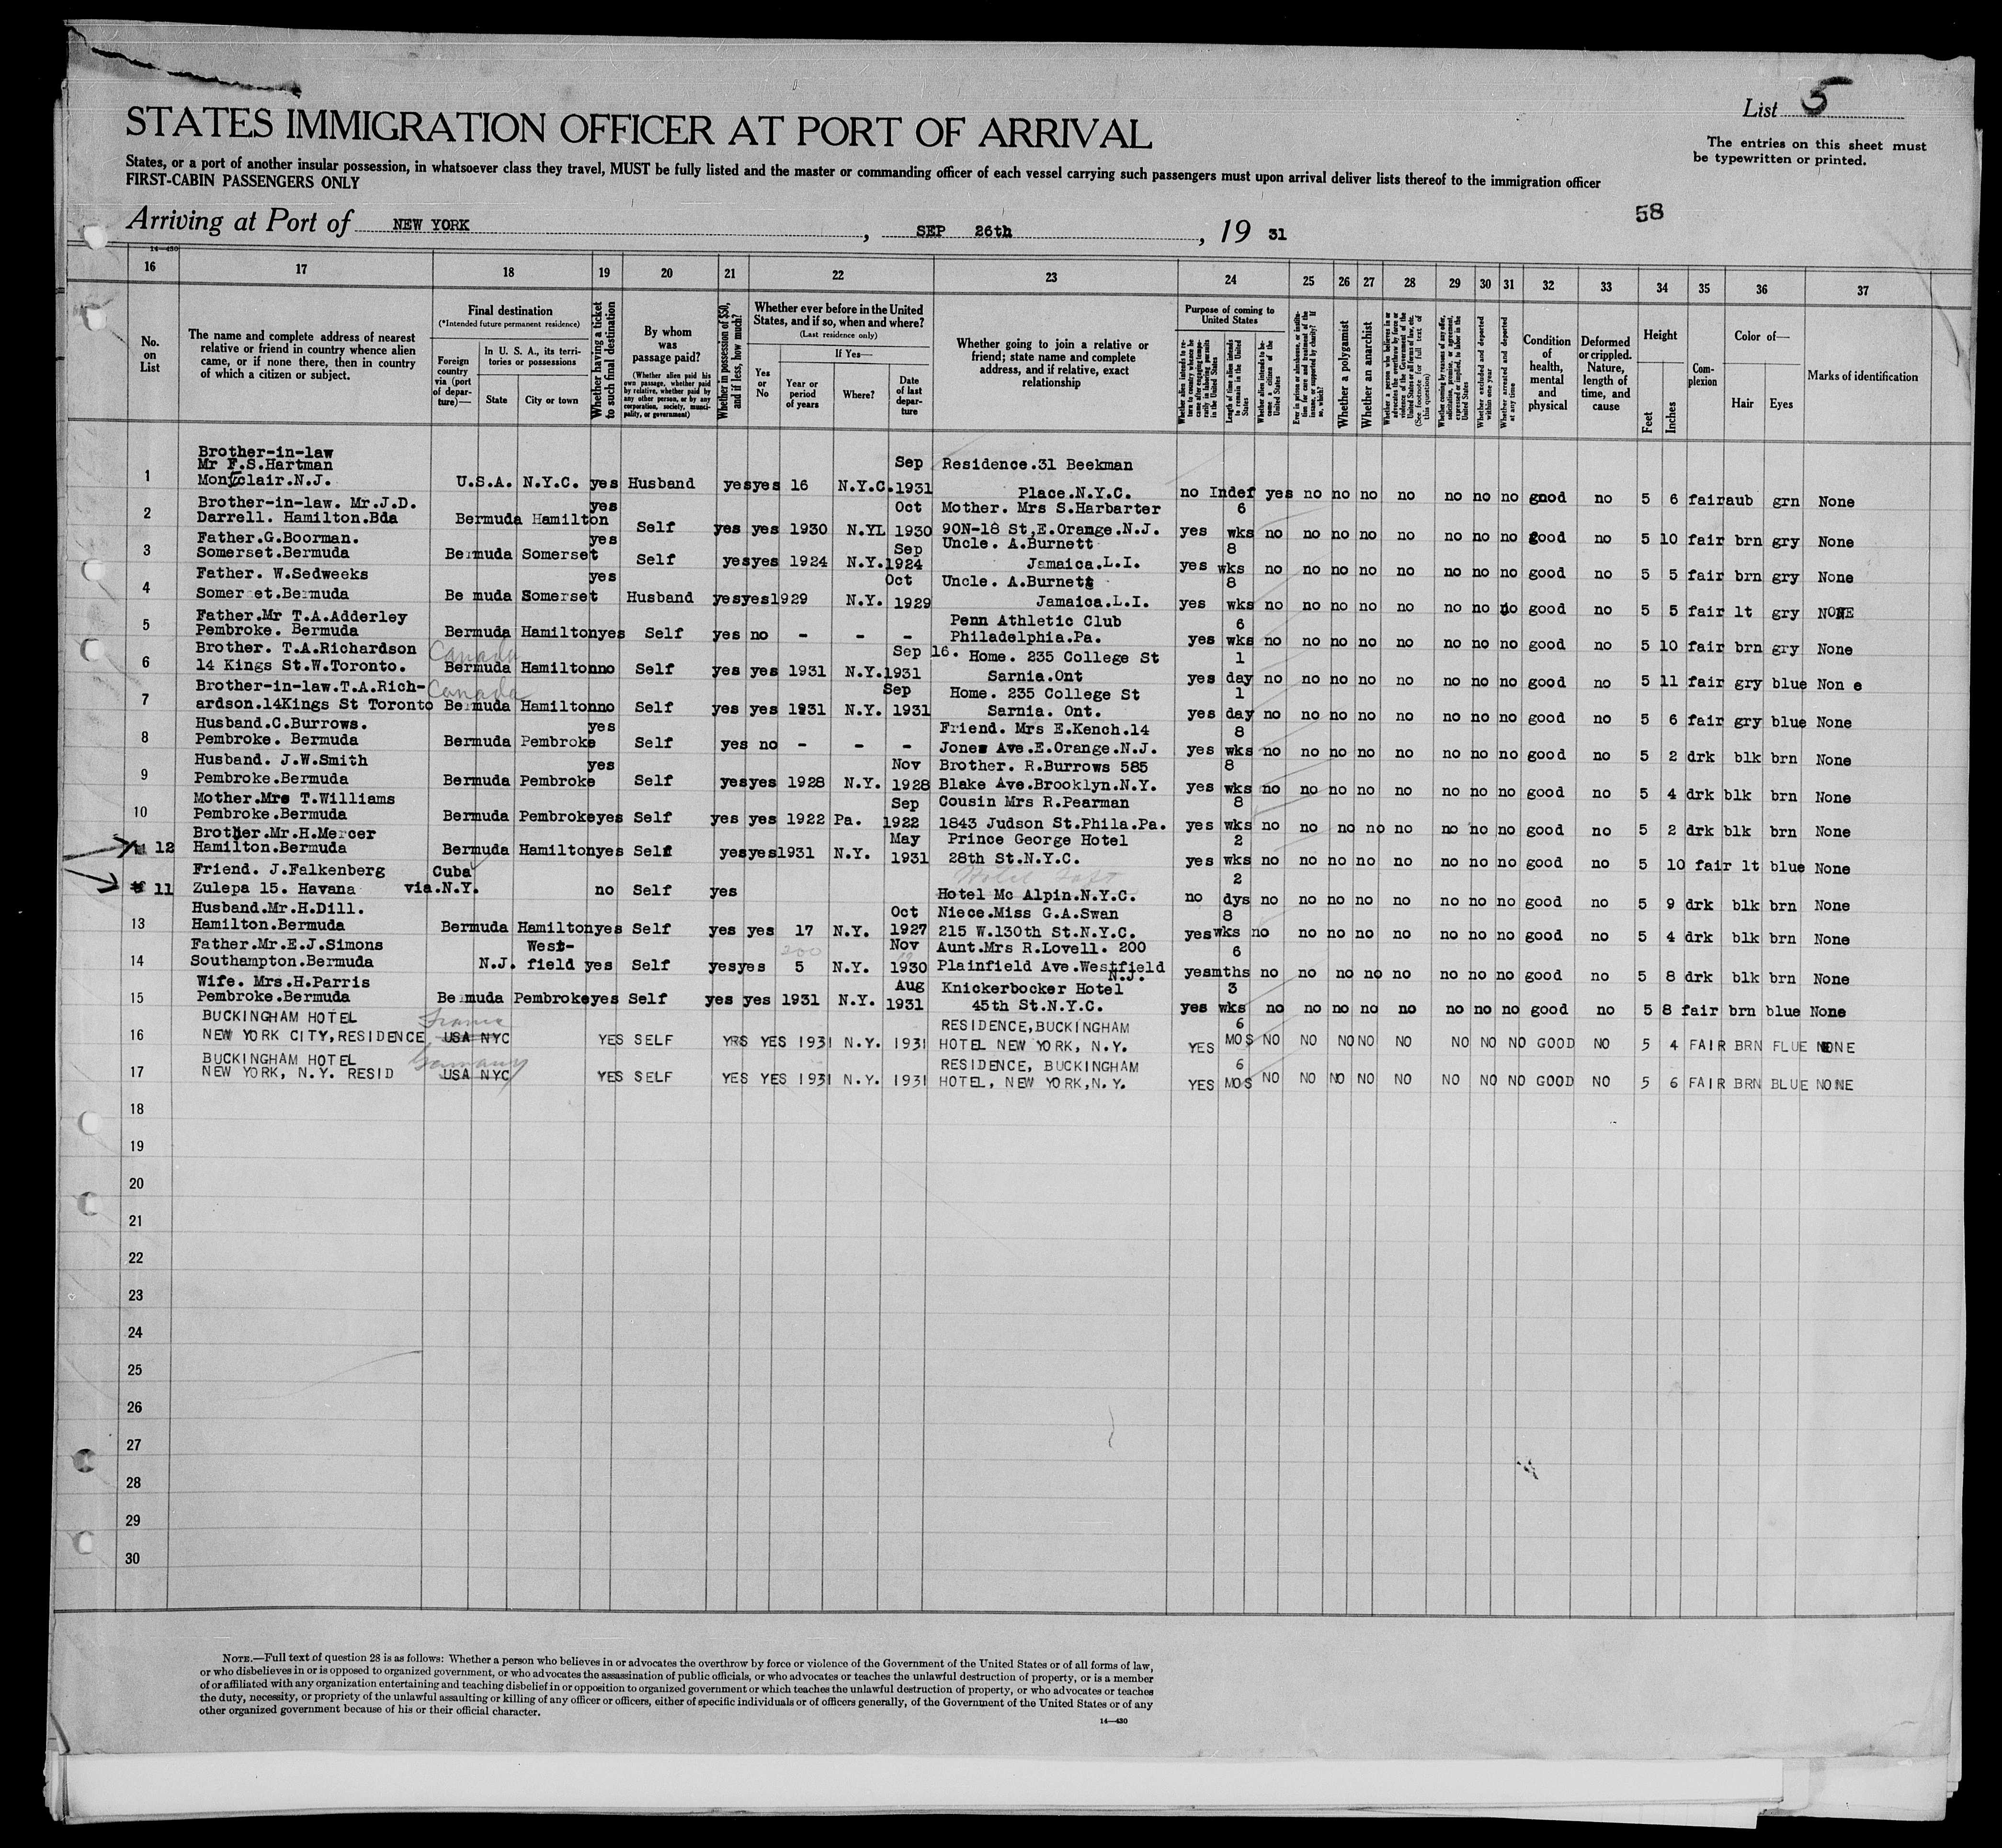 List 5
STATES IMMIGRATION OFFICER AT PORT OF ARRIVAL
The entries on this sheet must
be typewritten or printed.
States, or a port of another insular possession, in whatsoever class they travel, MUST be fully listed and the master or commanding officer of each vessel carrying such passengers must upon arrival deliver lists thereof to the immigration officer
FIRST-CABIN PASSENGERS ONLY
58
Arriving at Port of NEW YORK, SEP 26th, 19 31
14—430
16 17 18 19 20 21 22 23 24 25 26 27 28 29 30 31 32 33 34 35 36 37
No. on List
The name and complete address of nearest relative or friend in country whence alien came, or if none there, then in country of which a citizen or subject.
Final destination
(*Intended future permanent residence)
Foreign country via (port of departure)—
In U. S. A., its territories or possessions
State
City or town
Whether having a ticket to such final destination
By whom was passage paid?
(Whether alien paid his own passage, whether paid by relative, whether paid by any other person, or by any corporation, society, municipality, or government)
Whether in possession of $50, and if less, how much?
Whether ever before in the United States, and if so, when and where?
(Last residence only)
Yes or No
If Yes—
Year or period of years
Where?
Date of last departure
Whether going to join a relative or friend; state name and complete address, and if relative, exact relationship
Purpose of coming to United States
Whether alien intends to return to country whence he came after engaging temporarily in laboring pursuits in the United States
Length of time alien intends to remain in the United States
Whether alien intends to become a citizen of the United States
Ever in prison or almshouse, or institution for care and treatment of the insane, or supported by charity? If so, which?
Whether a polygamist
Whether an anarchist
Whether a person who believes in or advocates the overthrow by force or violence of the Government of the United States or all forms of law, etc. (See footnote for full text of this question)
Whether coming by reasons of any offer, solicitation, promise, or agreement, expressed or implied, to labor in the United States
Whether excluded and deported within one year
Whether arrested and deported at any time
Condition of health, mental and physical
Deformed or crippled. Nature, length of time, and cause
Height
Feet
Inches
Complexion
Color of—
Hair
Eyes
Marks of identification
Brother-in-law
Mr F.S.Hartman Sep Residence.31 Beekman
1 Montclair.N.J. U.S.A. N.Y.C. yes Husband yes yes 16 N.Y.C. 1931 Place.N.Y.C. no Indef yes no no no no no no no good no 5 6 fair aub grn None
Brother-in-law. Mr.J.D. yes Oct Mother. Mrs S.Harbarter 6
2 Darrell. Hamilton.Bda Bermuda Hamilton Self yes yes 1930 N.YL 1930 90N-18 St,E.Orange.N.J. yes wks no no no no no no no no good no 5 10 fair brn gry None
Father.G.Boorman. yes Sep Uncle. A.Burnett 8
3 Somerset.Bermuda Bermuda Somerset Self yes yes 1924 N.Y. 1924 Jamaica.L.I. yes wks no no no no no no no no good no 5 5 fair brn gry None
Father. W.Sedweeks yes Oct Uncle. A.Burnett 8
4 Somer et.Bermuda Be muda Somerset Husband yes yes 1929 N.Y. 1929 Jamaica.L.I. yes wks no no no no no no no no good no 5 5 fair lt gry NONE
Father.Mr T.A.Adderley Penn Athletic Club 6
5 Pembroke. Bermuda Bermuda Hamilton yes Self yes no - - - Philadelphia.Pa. yes wks no no no no no no no no good no 5 10 fair brn gry None
Brother. T.A.Richardson Canada Sep 16. Home. 235 College St 1
6 14 Kings St.W.Toronto. Bermuda Hamilton no Self yes yes 1931 N.Y. 1931 Sarnia.Ont yes day no no no no no no no no good no 5 11 fair gry blue None
Brother-in-law.T.A.Rich- Canada Sep Home. 235 College St 1
7 ardson.14Kings St Toronto Bermuda Hamilton no Self yes yes 1931 N.Y. 1931 Sarnia. Ont. yes day no no no no no no no no good no 5 6 fair gry blue None
Husband.C.Burrows. yes Friend. Mrs E.Kench.14 8
8 Pembroke. Bermuda Bermuda Pembroke Self yes no - - - Jones Ave.E.Orange.N.J. yes wks no no no no no no no no good no 5 2 drk blk brn None
Husband. J.W.Smith yes Nov Brother. R.Burrows 585 8
9 Pembroke.Bermuda Bermuda Pembroke Self yes yes 1928 N.Y. 1928 Blake Ave.Brooklyn.N.Y. yes wks no no no no no no no no good no 5 4 drk blk brn None
Mother.Mrs T.Williams Sep Cousin Mrs R.Pearman 8
10 Pembroke.Bermuda Bermuda Pembroke yes Self yes yes 1922 Pa. 1922 1843 Judson St.Phila.Pa. yes wks no no no no no no no no good no 5 2 drk blk brn None
Brother.Mr.H.Mercer May Prince George Hotel 2
12 Hamilton.Bermuda Bermuda Hamilton yes Self yes yes 1931 N.Y. 1931 28th St.N.Y.C. yes wks no no no no no no no no good no 5 10 fair lt blue None
Friend. J.Falkenberg Cuba 2
11 Zulepa 15. Havana via.N.Y. no Self yes Hotel Mc Alpin.N.Y.C. no dys no no no no no no no no good no 5 9 drk blk brn None
Husband.Mr.H.Dill. Oct Niece.Miss G.A.Swan 8
13 Hamilton.Bermuda Bermuda Hamilton yes Self yes yes 17 N.Y. 1927 215 W.130th St.N.Y.C. yes wks no no no no no no no no good no 5 4 drk blk brn None
Father.Mr.E.J.Simons West- 200 Nov Aunt.Mrs R.Lovell. 200 6
14 Southampton.Bermuda N.J. field yes Self yes yes 5 N.Y. 1930 Plainfield Ave.Westfield N.J. yes mths no no no no no no no no good no 5 8 drk blk brn None
Wife. Mrs.H.Parris Aug Knickerbocker Hotel 3
15 Pembroke.Bermuda Be muda Pembroke yes Self yes yes 1931 N.Y. 1931 45th St.N.Y.C. yes wks no no no no no no no no good no 5 8 fair brn blue None
BUCKINGHAM HOTEL France RESIDENCE,BUCKINGHAM 6
16 NEW YORK CITY,RESIDENCE USA NYC YES SELF YRS YES 1931 N.Y. 1931 HOTEL NEW YORK, N.Y. YES MOS NO NO NO NO NO NO NO NO GOOD NO 5 4 FAIR BRN FLUE NONE
BUCKINGHAM HOTEL Germany RESIDENCE, BUCKINGHAM 6
17 NEW YORK, N.Y. RESID USA NYC YES SELF YES YES 1931 N.Y. 1931 HOTEL, NEW YORK,N.Y. YES MOS NO NO NO NO NO NO NO NO GOOD NO 5 6 FAIR BRN BLUE NONE
18
19
20
21
22
23
24
25
26
27
28
29
30
NOTE.—Full text of question 28 is as follows: Whether a person who believes in or advocates the overthrow by force or violence of the Government of the United States or of all forms of law,
or who disbelieves in or is opposed to organized government, or who advocates the assassination of public officials, or who advocates or teaches the unlawful destruction of property, or is a member
of or affiliated with any organization entertaining and teaching disbelief in or opposition to organized government or which teaches the unlawful destruction of property, or who advocates or teaches
the duty, necessity, or propriety of the unlawful assaulting or killing of any officer or officers, either of specific individuals or of officers generally, of the Government of the United States or of any
other organized government because of his or their official character.
14—430